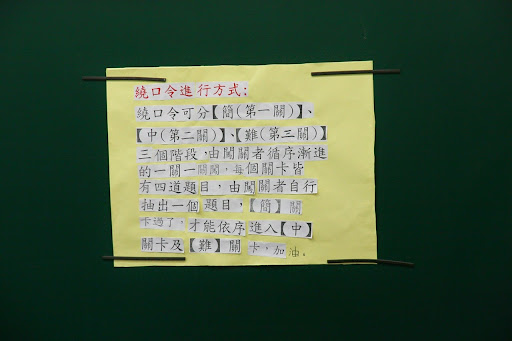 繞口令進行方式:
繞口令可分【簡(第一關)】、
【中(第二關)】、【難(第三關)】
三個階段,由闖關者循序漸進
的一關一關闖,每個關卡皆
有四道題目,由闖關者自行
抽出一個題目,【簡】關
卡過了,才能依序進入【中】
關卡及【難】關卡,加油。